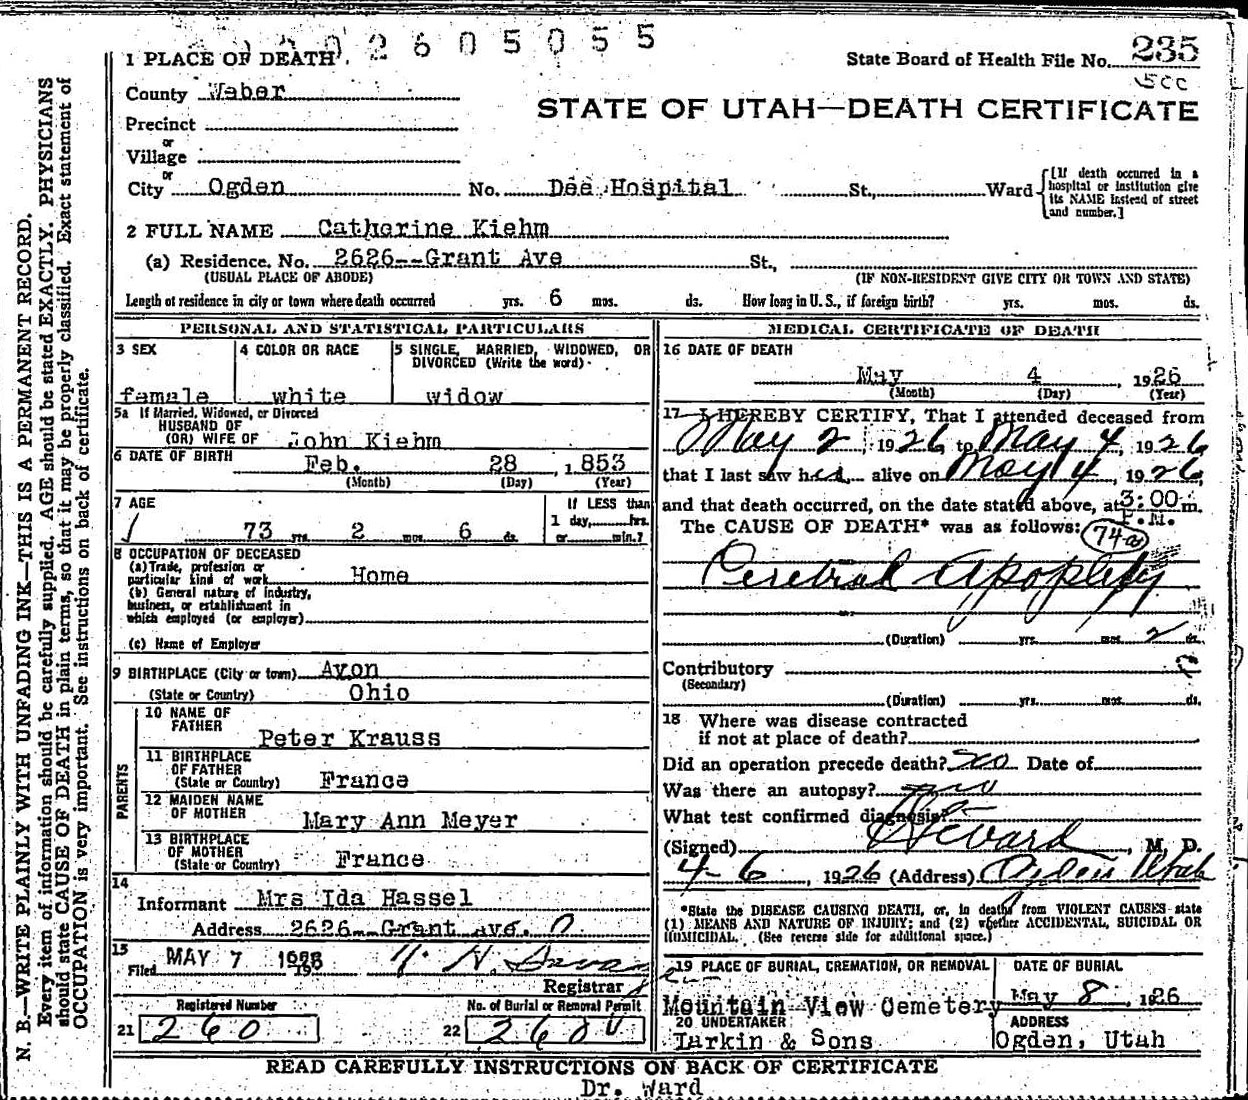 2605055
1 PLACE OF DEATH
State Board of Health File No. 235
County Weber
STATE OF UTAH—DEATH CERTIFICATE
Precinct
or
Village
or
City Ogden No. Dee Hospital St., Ward
[If death occurred in a hospital or institution give its NAME instead of street and number.]
2 FULL NAME Catherine Kiehm
(a) Residence, No. 2626--Grant Ave St.,
(USUAL PLACE OF ABODE) (IF NON-RESIDENT GIVE CITY OR TOWN AND STATE)
Length of residence in city or town where death occurred yrs. 6 mos. ds. How long in U. S., if foreign birth? yrs. mos. ds.
PERSONAL AND STATISTICAL PARTICULARS
3 SEX
female
4 COLOR OR RACE
white
5 SINGLE, MARRIED, WIDOWED, OR DIVORCED (Write the word)
widow
5a If Married, Widowed, or Divorced
HUSBAND OF
(OR) WIFE OF John Kiehm
6 DATE OF BIRTH Feb. 28 , 1853
(Month) (Day) (Year)
7 AGE
73 yrs. 2 mos. 6 ds.
If LESS than
1 day, hrs.
or min.?
8 OCCUPATION OF DECEASED
(a) Trade, profession or
particular kind of work Home
(b) General nature of industry,
business, or establishment in
which employed (or employer)
(c) Name of Employer
9 BIRTHPLACE (City or town) Avon
(State or Country) Ohio
PARENTS
10 NAME OF
FATHER Peter Krauss
11 BIRTHPLACE
OF FATHER
(State or Country) France
12 MAIDEN NAME
OF MOTHER Mary Ann Meyer
13 BIRTHPLACE
OF MOTHER
(State or Country) France
14
Informant Mrs Ida Hassel
Address 2626--Grant Ave. O
15
Filed MAY 7 1926
Registrar
Registered Number
21 260
No. of Burial or Removal Permit
22 260
MEDICAL CERTIFICATE OF DEATH
16 DATE OF DEATH
May 4 , 1926
(Month) (Day) (Year)
17 I HEREBY CERTIFY, That I attended deceased from
May 2, 1926, to May 4, 1926
that I last saw her alive on May 4, 1926,
and that death occurred, on the date stated above, at 3:00 m.
P.M.
The CAUSE OF DEATH* was as follows: 74a
Cerebral Apoplexy
(Duration) yrs. mos. 2 ds.
Contributory
(Secondary)
(Duration) yrs. mos. ds.
18 Where was disease contracted
if not at place of death?
Did an operation precede death? no Date of
Was there an autopsy? no
What test confirmed diagnosis?
(Signed) Ward, M. D.
4-6, 1926 (Address) Ogden Utah
*State the DISEASE CAUSING DEATH, or, in deaths from VIOLENT CAUSES state
(1) MEANS AND NATURE OF INJURY; and (2) whether ACCIDENTAL, SUICIDAL OR
HOMICIDAL. (See reverse side for additional space.)
19 PLACE OF BURIAL, CREMATION, OR REMOVAL
Mountain View Cemetery
DATE OF BURIAL
May 8, 1926
20 UNDERTAKER
Larkin & Sons
ADDRESS
Ogden, Utah
READ CAREFULLY INSTRUCTIONS ON BACK OF CERTIFICATE
Dr. Ward
N. B.—WRITE PLAINLY WITH UNFADING INK—THIS IS A PERMANENT RECORD.
Every item of information should be carefully supplied. AGE should be stated EXACTLY. PHYSICIANS
should state CAUSE OF DEATH in plain terms, so that it may be properly classified. Exact statement of
OCCUPATION is very important. See instructions on back of certificate.